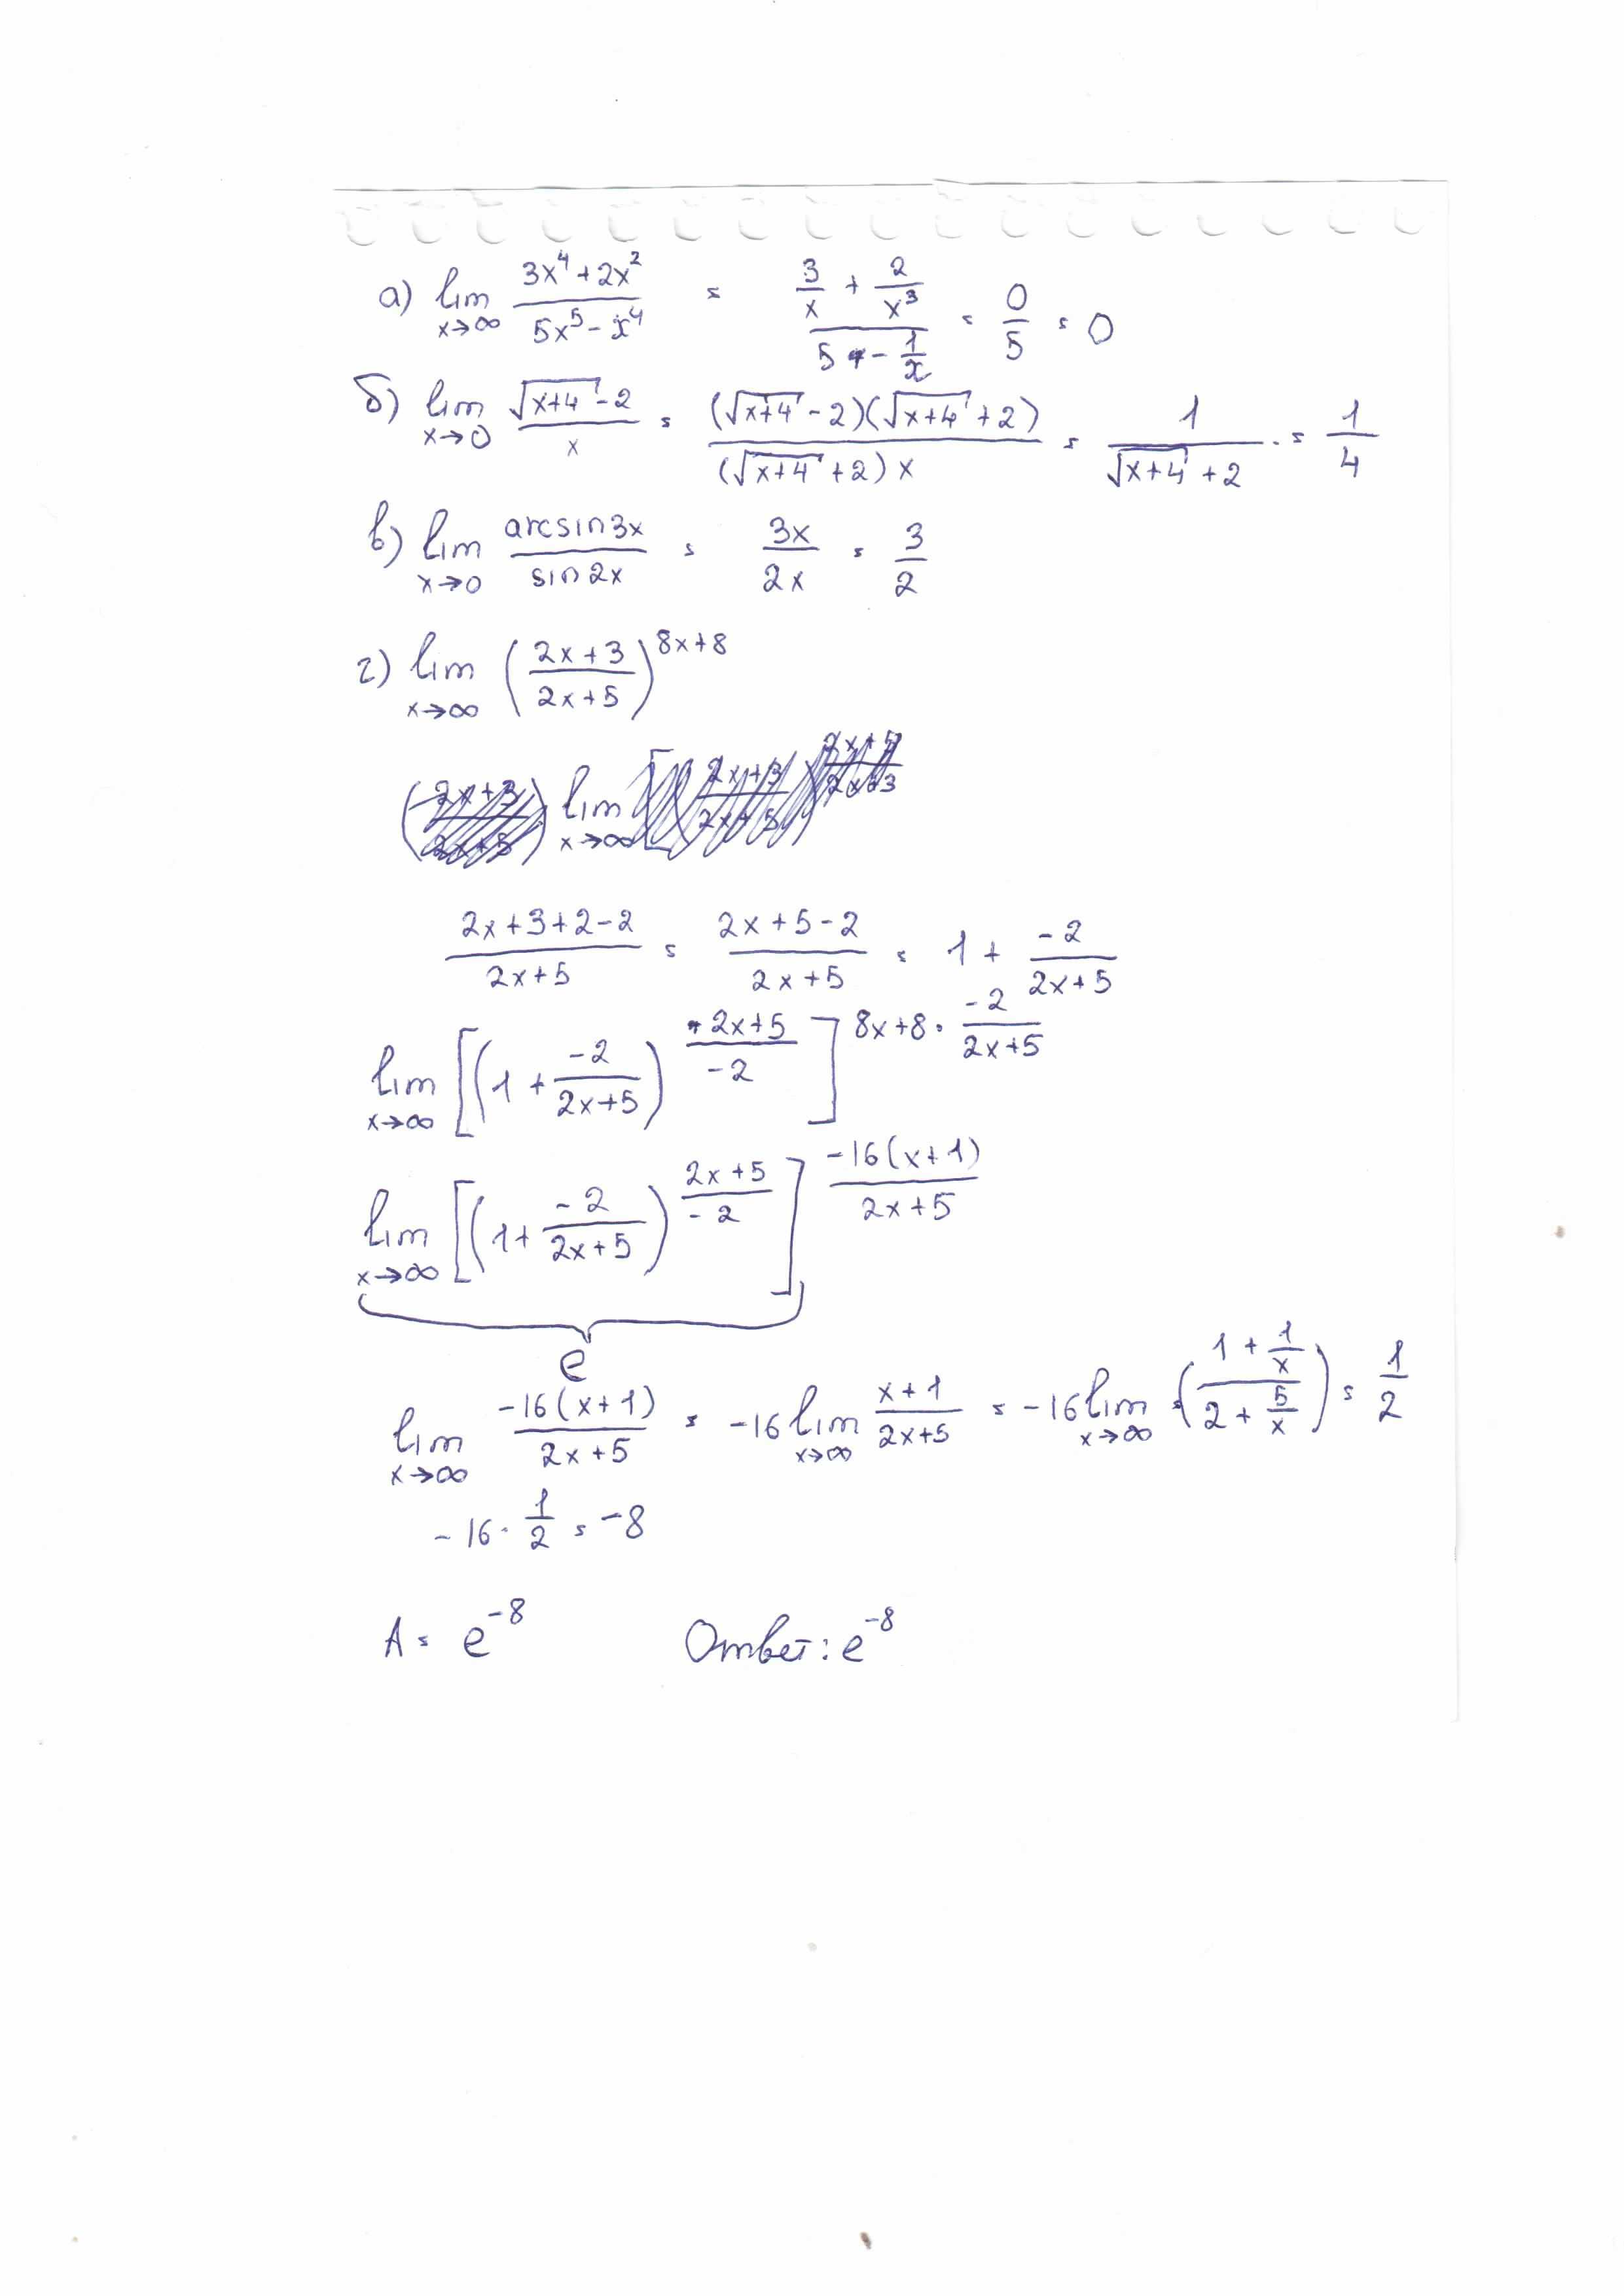 а) lim x→∞ (3x⁴+2x²)/(5x⁵-x⁴) = (3/x + 2/x³)/(5 - 1/x) = 0/5 = 0
б) lim x→0 (√(x+4) -2)/x = (√(x+4) -2)(√(x+4) +2)/((√(x+4) +2)x) = 1/(√(x+4) +2) = 1/4
в) lim x→0 arcsin3x/sin2x = 3x/2x = 3/2
г) lim x→∞ ((2x+3)/(2x+5))^(8x+8)
((2x+3)/(2x+5)) lim x→∞ [((2x+3)/(2x+5))^((2x+5)/(2x+3))
(2x+3+2-2)/(2x+5) = (2x+5-2)/(2x+5) = 1 + -2/(2x+5)
lim x→∞ [(1 + -2/(2x+5))^((2x+5)/-2)]^(8x+8 · -2/(2x+5))
lim x→∞ [(1+ -2/(2x+5))^((2x+5)/-2)]^(-16(x+1)/(2x+5))
e
lim x→∞ -16(x+1)/(2x+5) = -16 lim x→∞ (x+1)/(2x+5) = -16 lim x→∞ ((1+1/x)/(2+5/x)) = 1/2
-16 · 1/2 = -8
A = e⁻⁸ Ответ: e⁻⁸